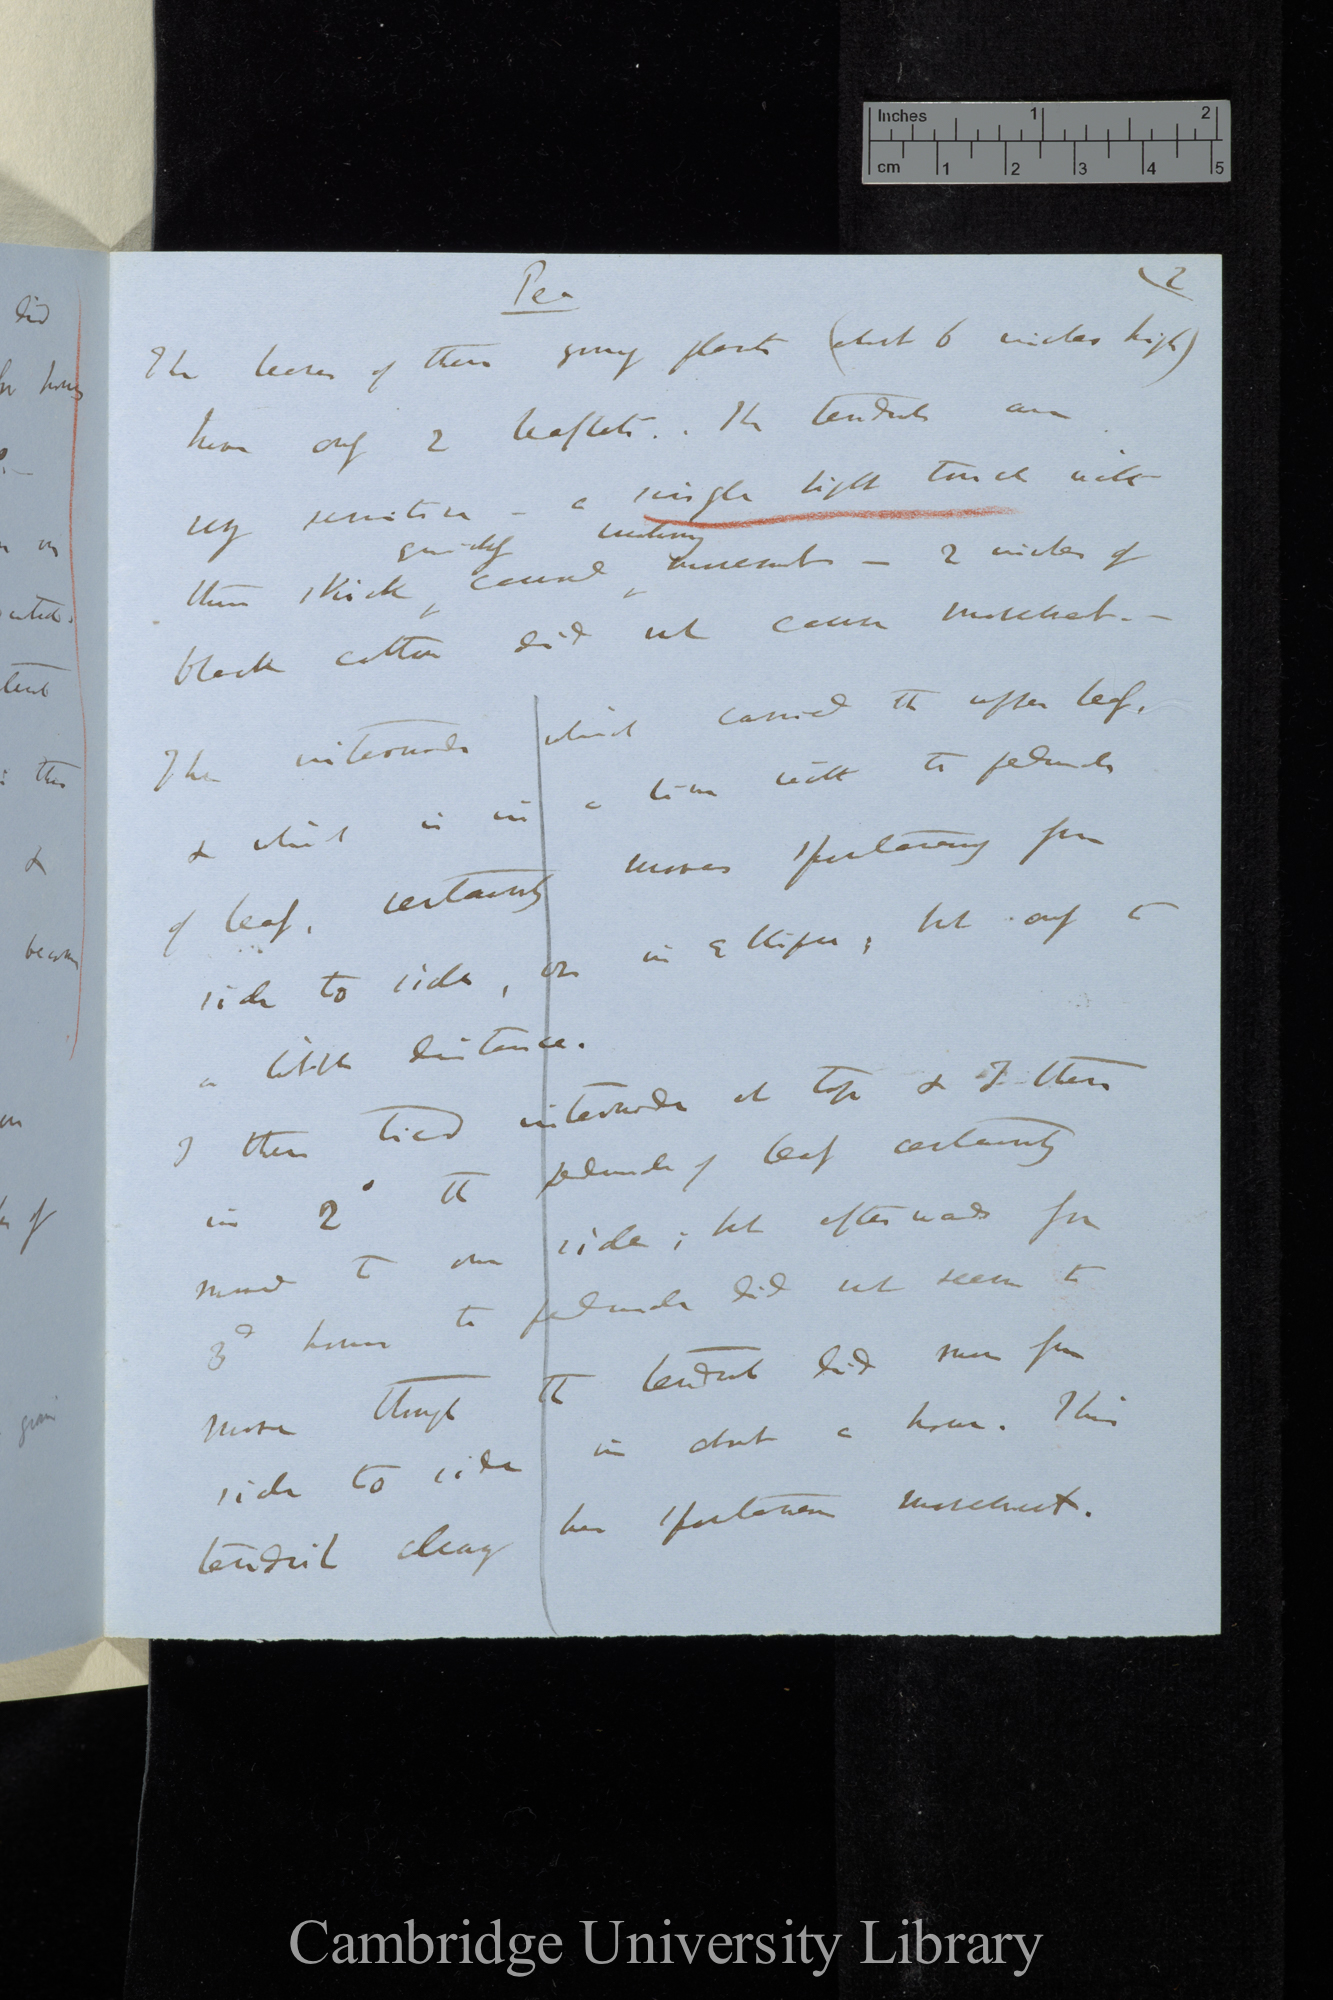 Inches 1 2
cm 1 2 3 4 5
Pea
(2
The leaves of these young plants (about 6 inches high)
have only 2 leaflets. . The tendrils are
very sensitive – a single light touch with
quickly
thin stick, caused, movements — 2 inches of
black cotton did not cause movement. —
The internode which carried the upper leaf,
& which is in a line with the peduncle
of leaf, certainly moves spontaneously from
side to side, or in Ellipse; but only to
a little distance.
I then tied internode at top & I then
in 2° the peduncle of leaf certainly
moved to one side; but afterwards for
3 hours the peduncle did not seem to
move though the tendril did move from
side to side in about a hour. This
tendril clearly has spontaneous movement.
did
for hours
on
tent
this
&
become
of
Cambridge University Library